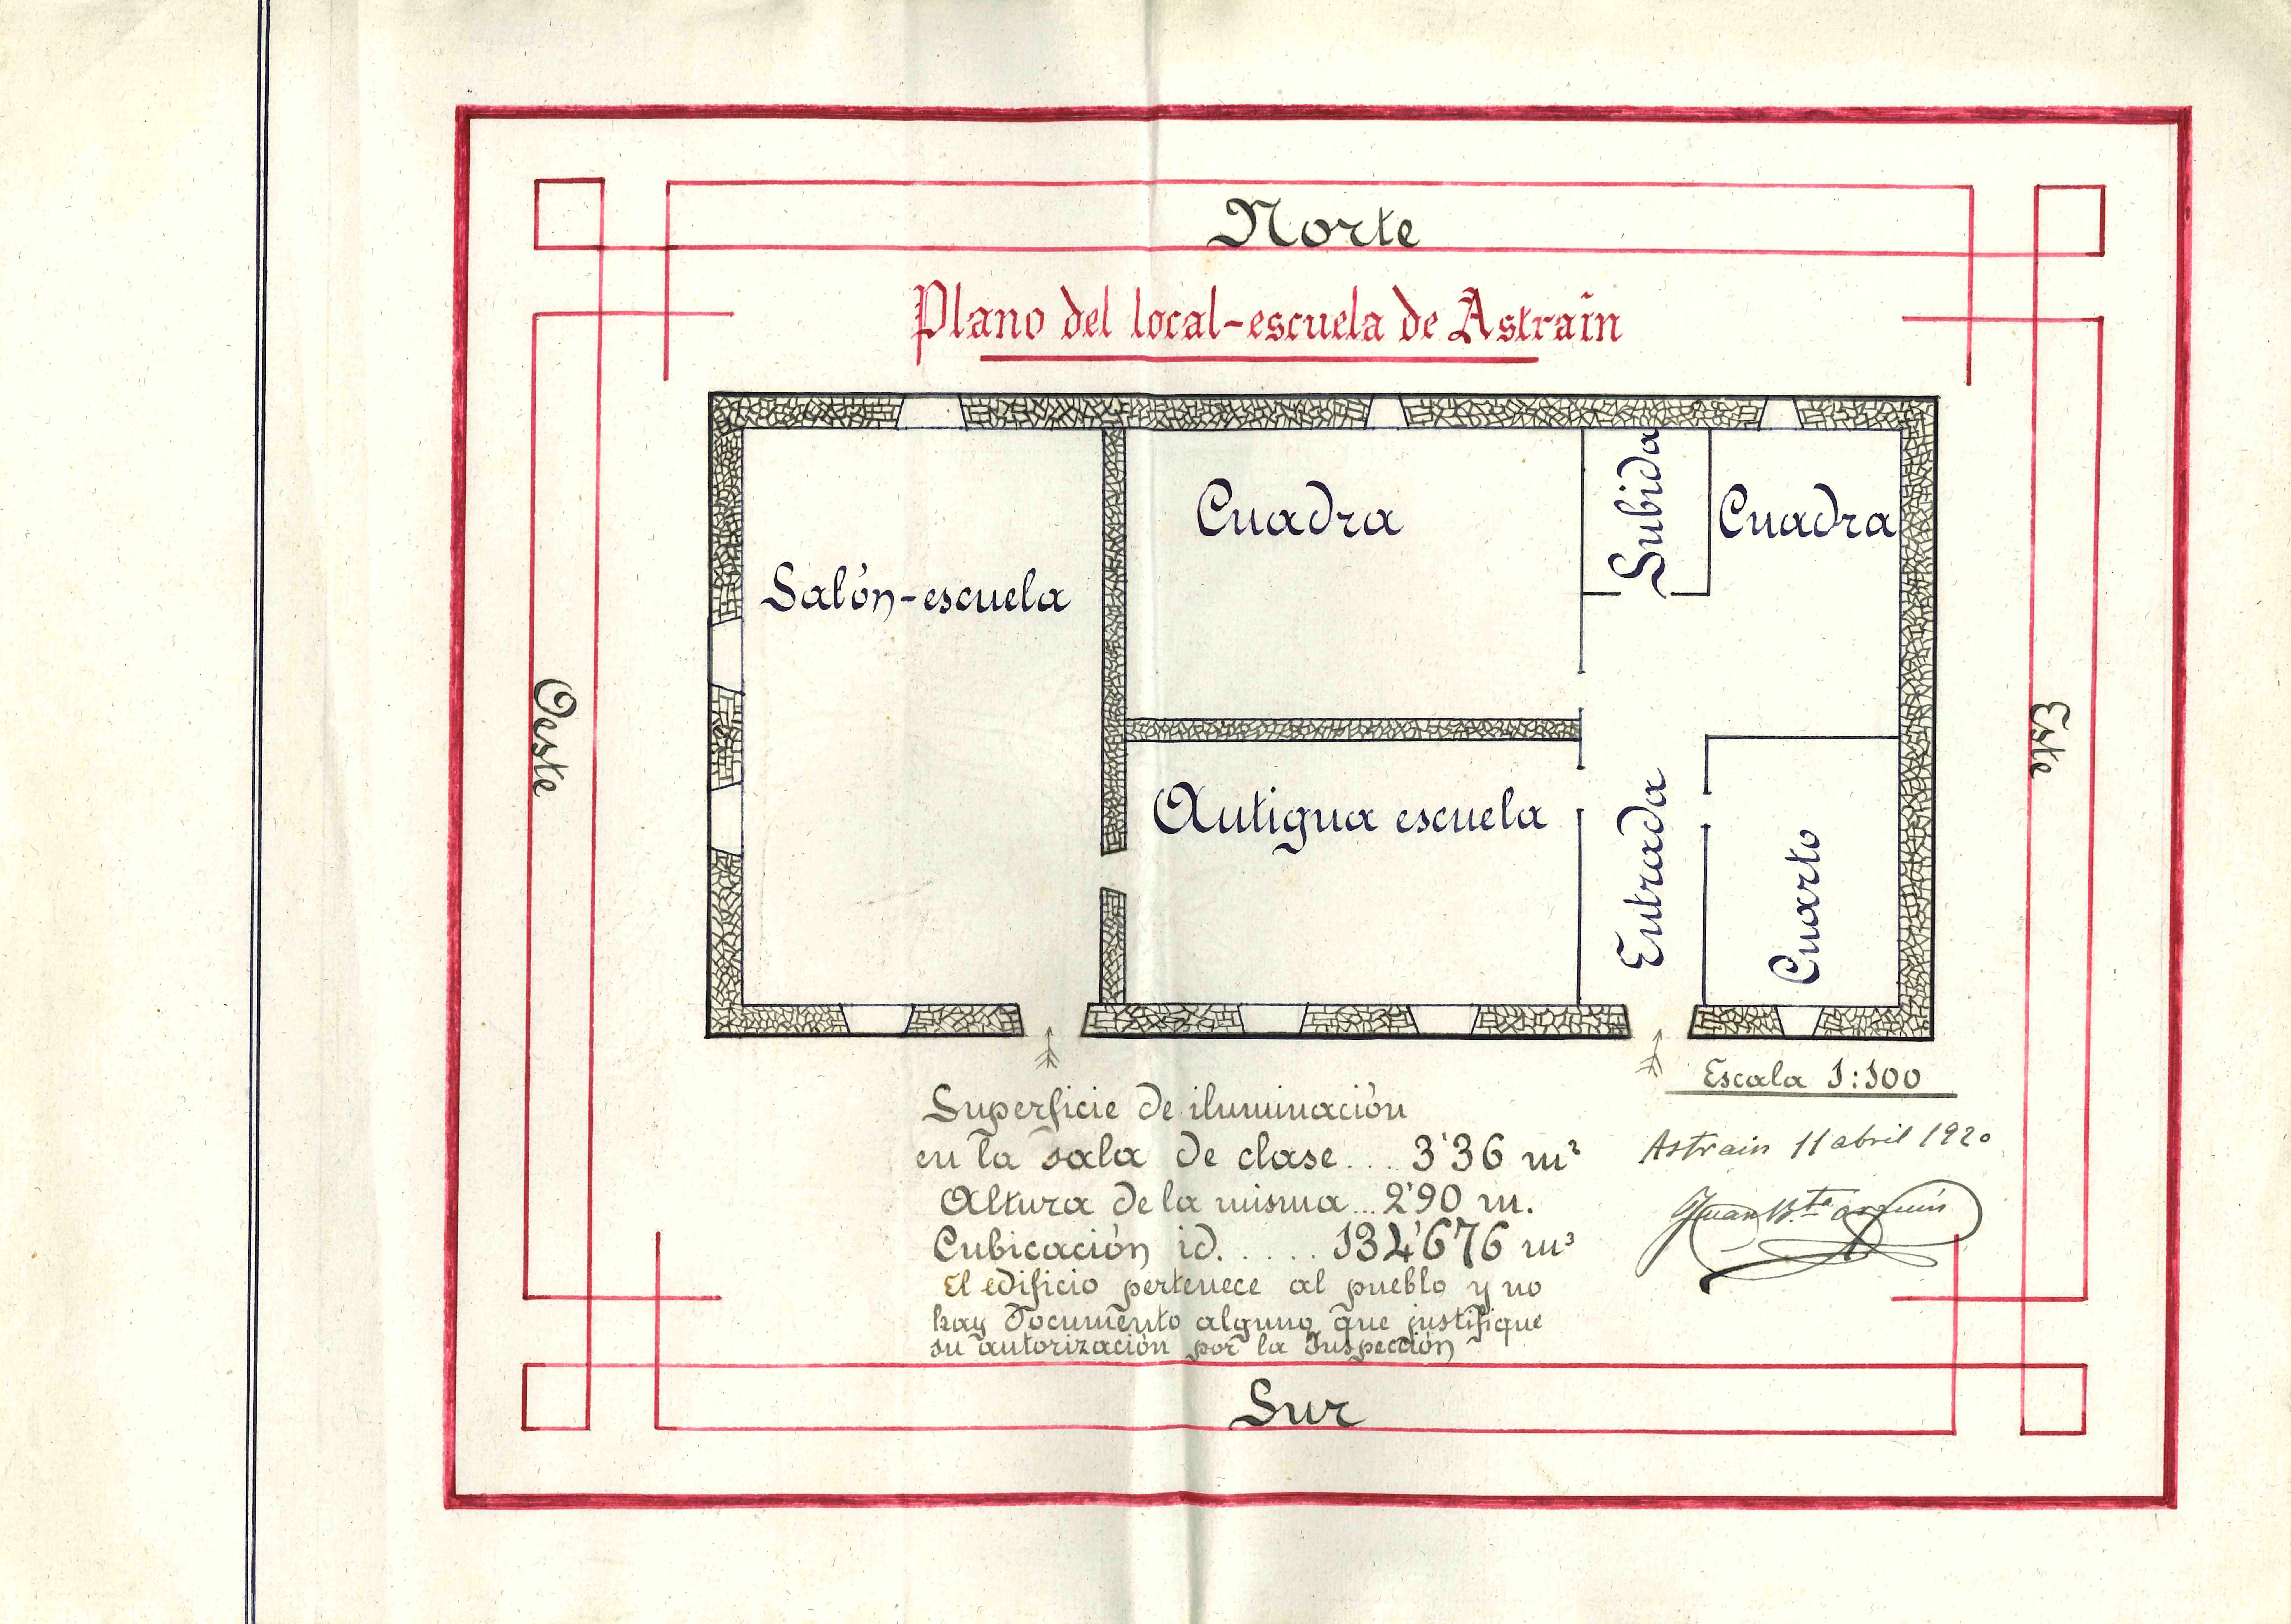 Norte
Plano del local-escuela de Astrain
Salón-escuela
Cuadra
Subida
Cuadra
Oeste
Este
Antigua escuela
Entrada
Cuarto
Escala 1:100
Superficie de iluminación
en la sala de clase.... 3'36 m²
Altura de la misma...2'90 m.
Cubicación id...... 134'676 m³
El edificio pertenece al pueblo y no
hay documento alguno que justifique
su autorización por la Inspección
Astrain 11 abril 1920
Juan B.ta
Sur